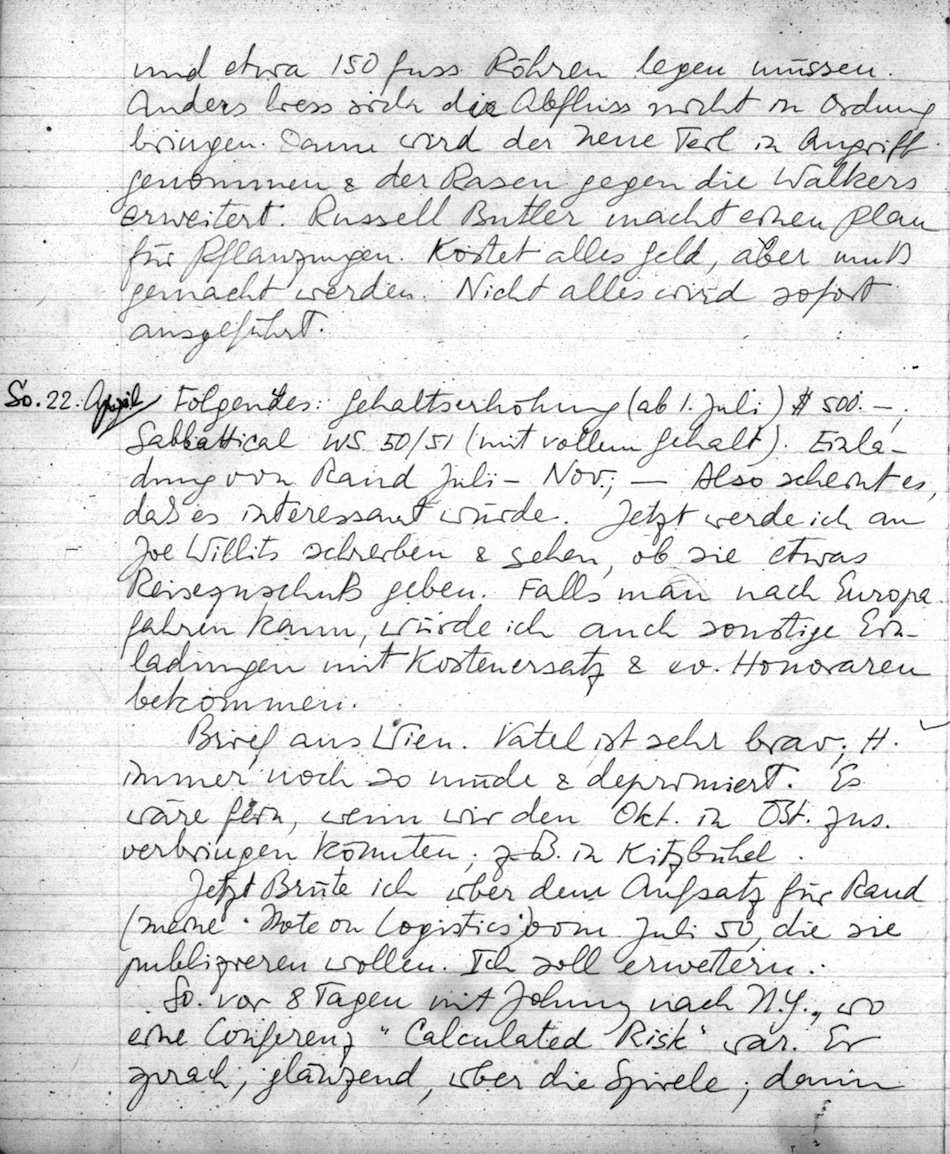 und etwa 150 fuss Röhren legen müssen.
Anders liess sich die Abfluss nicht in Ordnung
bringen. Dann wird der neue Teil in Angriff
genommen & der Rasen gegen die Walkers
erweitert. Russell Butler macht einen Plan
für Pflanzungen. Kostet alles Geld, aber muß
gemacht werden. Nicht alles wird sofort
ausgeführt.
So. 22. April Folgendes: Gehaltserhöhung (ab 1. Juli) $ 500.–,
Sabbattical WS. 50/51 (mit vollem Gehalt). Einla-
dung von Rand Juli – Nov.; — Also scheint es,
daß es interessant würde. Jetzt werde ich an
Joe Willits schreiben & sehen, ob sie etwas
Reisezuschuß geben. Falls man nach Europa
fahren kann, würde ich auch sonstige Ein-
ladungen mit Kostenersatz & ev. Honoraren
bekommen.
Brief aus Wien. Vatel ist sehr brav; H.
immer noch so müde & deprimiert. Es
wäre fein, wenn wir den Okt. in Öst. zus.
verbringen könnten; z.B. in Kitzbühel.
Jetzt Brüte ich über dem Aufsatz für Rand
(meine "Note on Logistics" vom Juli 50, die sie
publizieren wollen. Ich soll erweitern.
So. vor 8 Tagen mit Johnny nach N.Y., wo
eine Conferenz "Calculated Risk" war. Er
sprach, glänzend, über die Spiele; dann